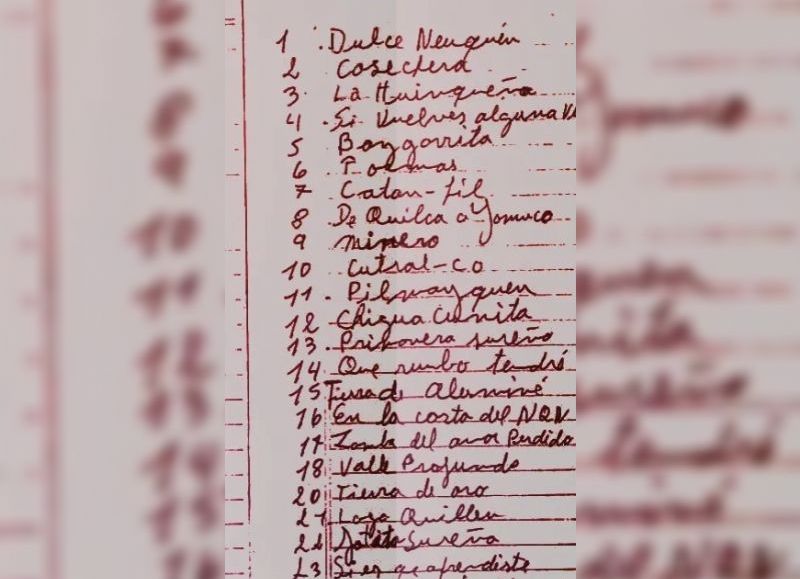 1 . Dulce Neuquén
2 Cosechera
3. La Huinqueña
4 . Si Vuelves alguna
5 Baygorrita
6 Poemas
7 Catan-Lil
8 De Quilca a
9 Minero
10 Cutral-co
11. Pilmayquen
12 Chigua Cunita
13. Primavera sureño
14 Que rumbo tendré
15 Tierra de Aluminé
16 En la costa del NQN
17 Zamba del amor Perdido
18 Valle Profundo
20 Tierra de oro
21 Lago Quillen
Sureña
23 Si es